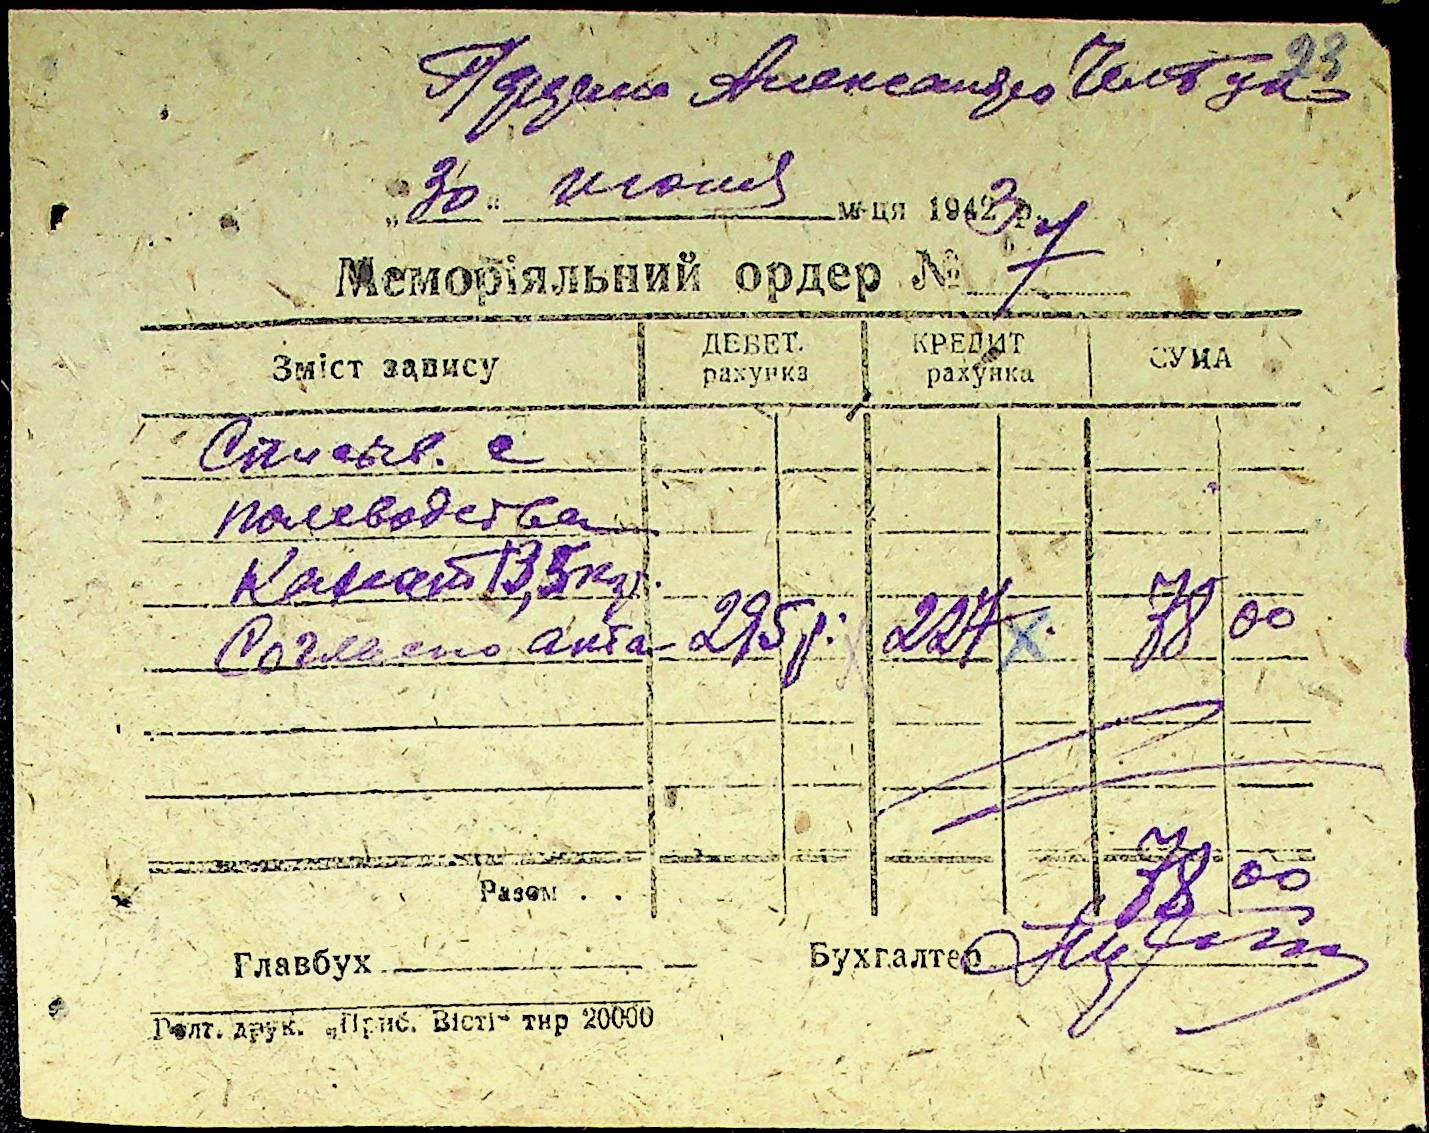 23
Александро
„30“ июня м-ця 1943 р.
Меморіяльний ордер № 7
Зміст запису ДЕБЕТ. рахунка КРЕДИТ рахунка СУМА
Списыв. с
полеводства
Канат 13,5 кгр.
Согласно акта 295 р. 227 х. 78 00
Разом . . 78 00
Главбух Бухгалтер
Голт. друк. „Приб. Вісті“ тир 20000